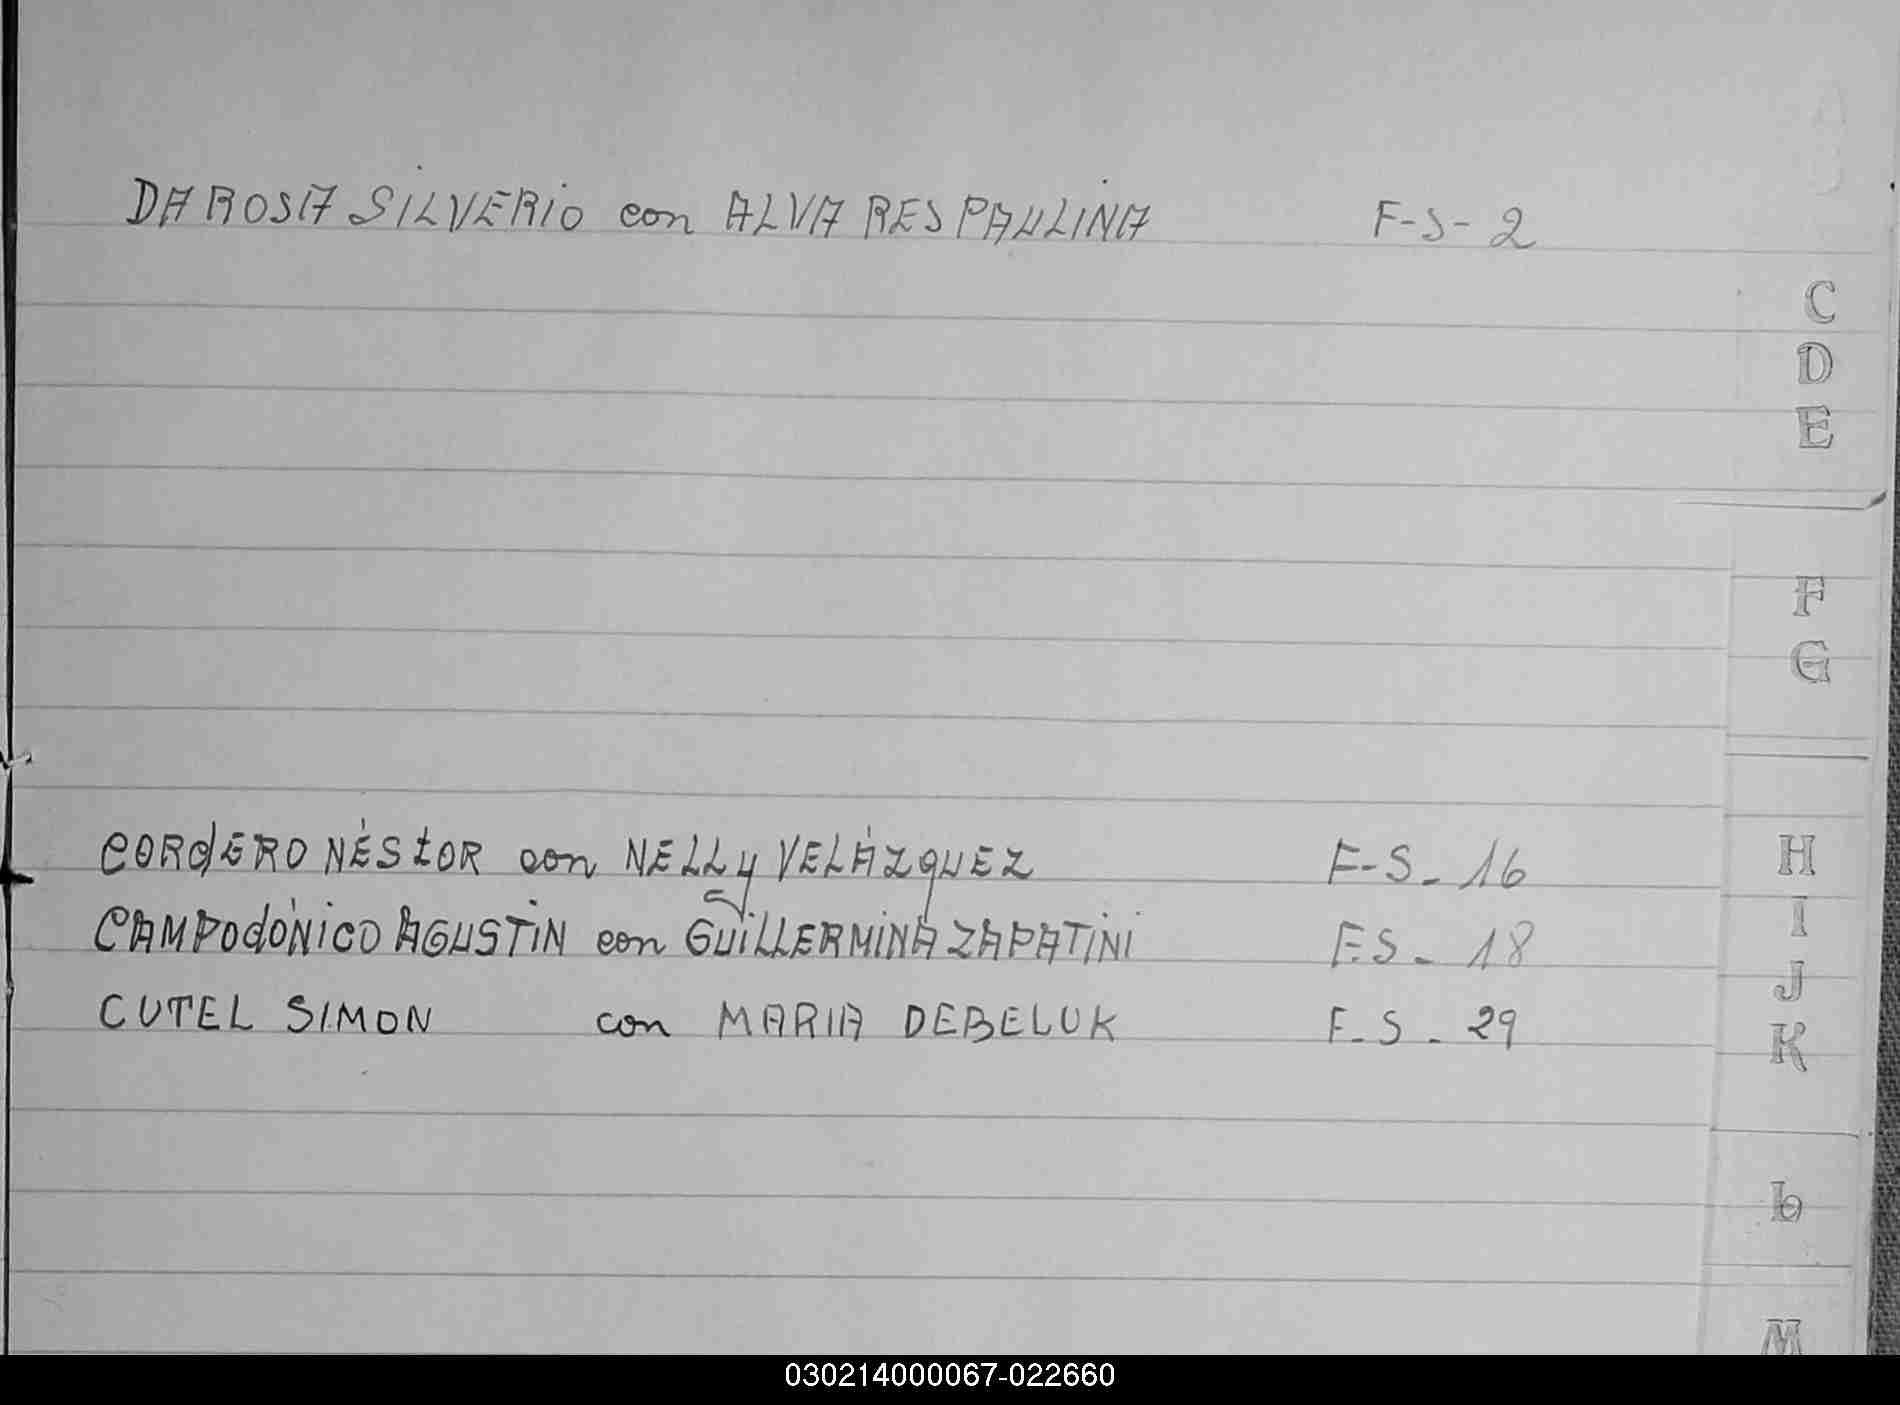 DA ROSA SILVERIO con ALVARES PAULINA F-S-2
C
D
E
F
G
CORdERO NÉStOR con NELLy VELÁZqUEZ F-S-16
H
CAMPOdÓNICO AGUSTIN con GUILLERMINA ZAPATINI F.S-18
I
J
CUTEL SIMON con MARIA DEBELUK F-S-29
K
L
M
030214000067-022660